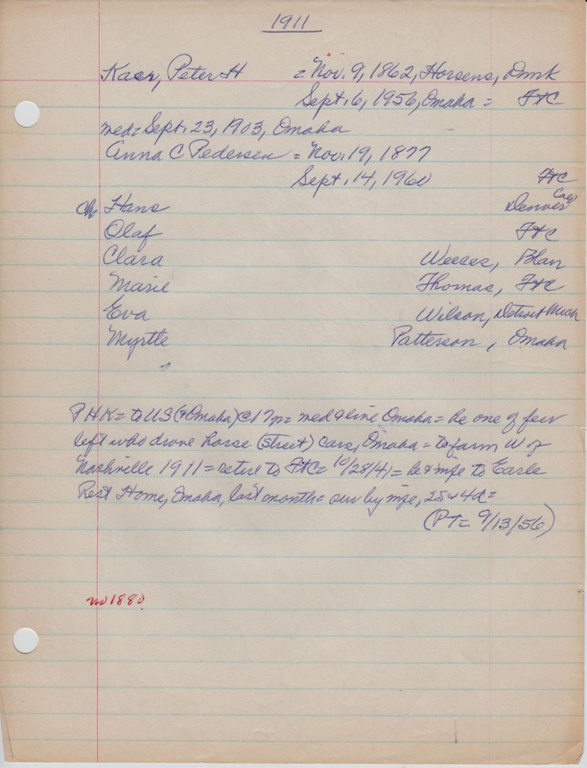 1911
Kaer, Peter H = Nov. 9, 1862, Horsens, Dmk
Sept. 6, 1956, Omaha = FtC
med = Sept. 23, 1903, Omaha
Anna C Pedersen = Nov. 19, 1877
Sept. 14, 1960 FtC
ch Hans Denver
Olaf FtC
Clara Weeces, Blair
Marie Thomas, FtC
Eva Wilson, Detroit Mich
Myrtle Patterson, Omaha
PHK = to US (& Omaha) @ 17 = med & live Omaha = he one of few
left who drove horse (street) cars, Omaha = to farm W of
Nashville 1911 = retire to FtC = 10/28/41 = he & mfe to Earle
Rest Home, Omaha, last month = sur by mfe, 2s & 4d =
(PT = 9/13/56)
no 1880